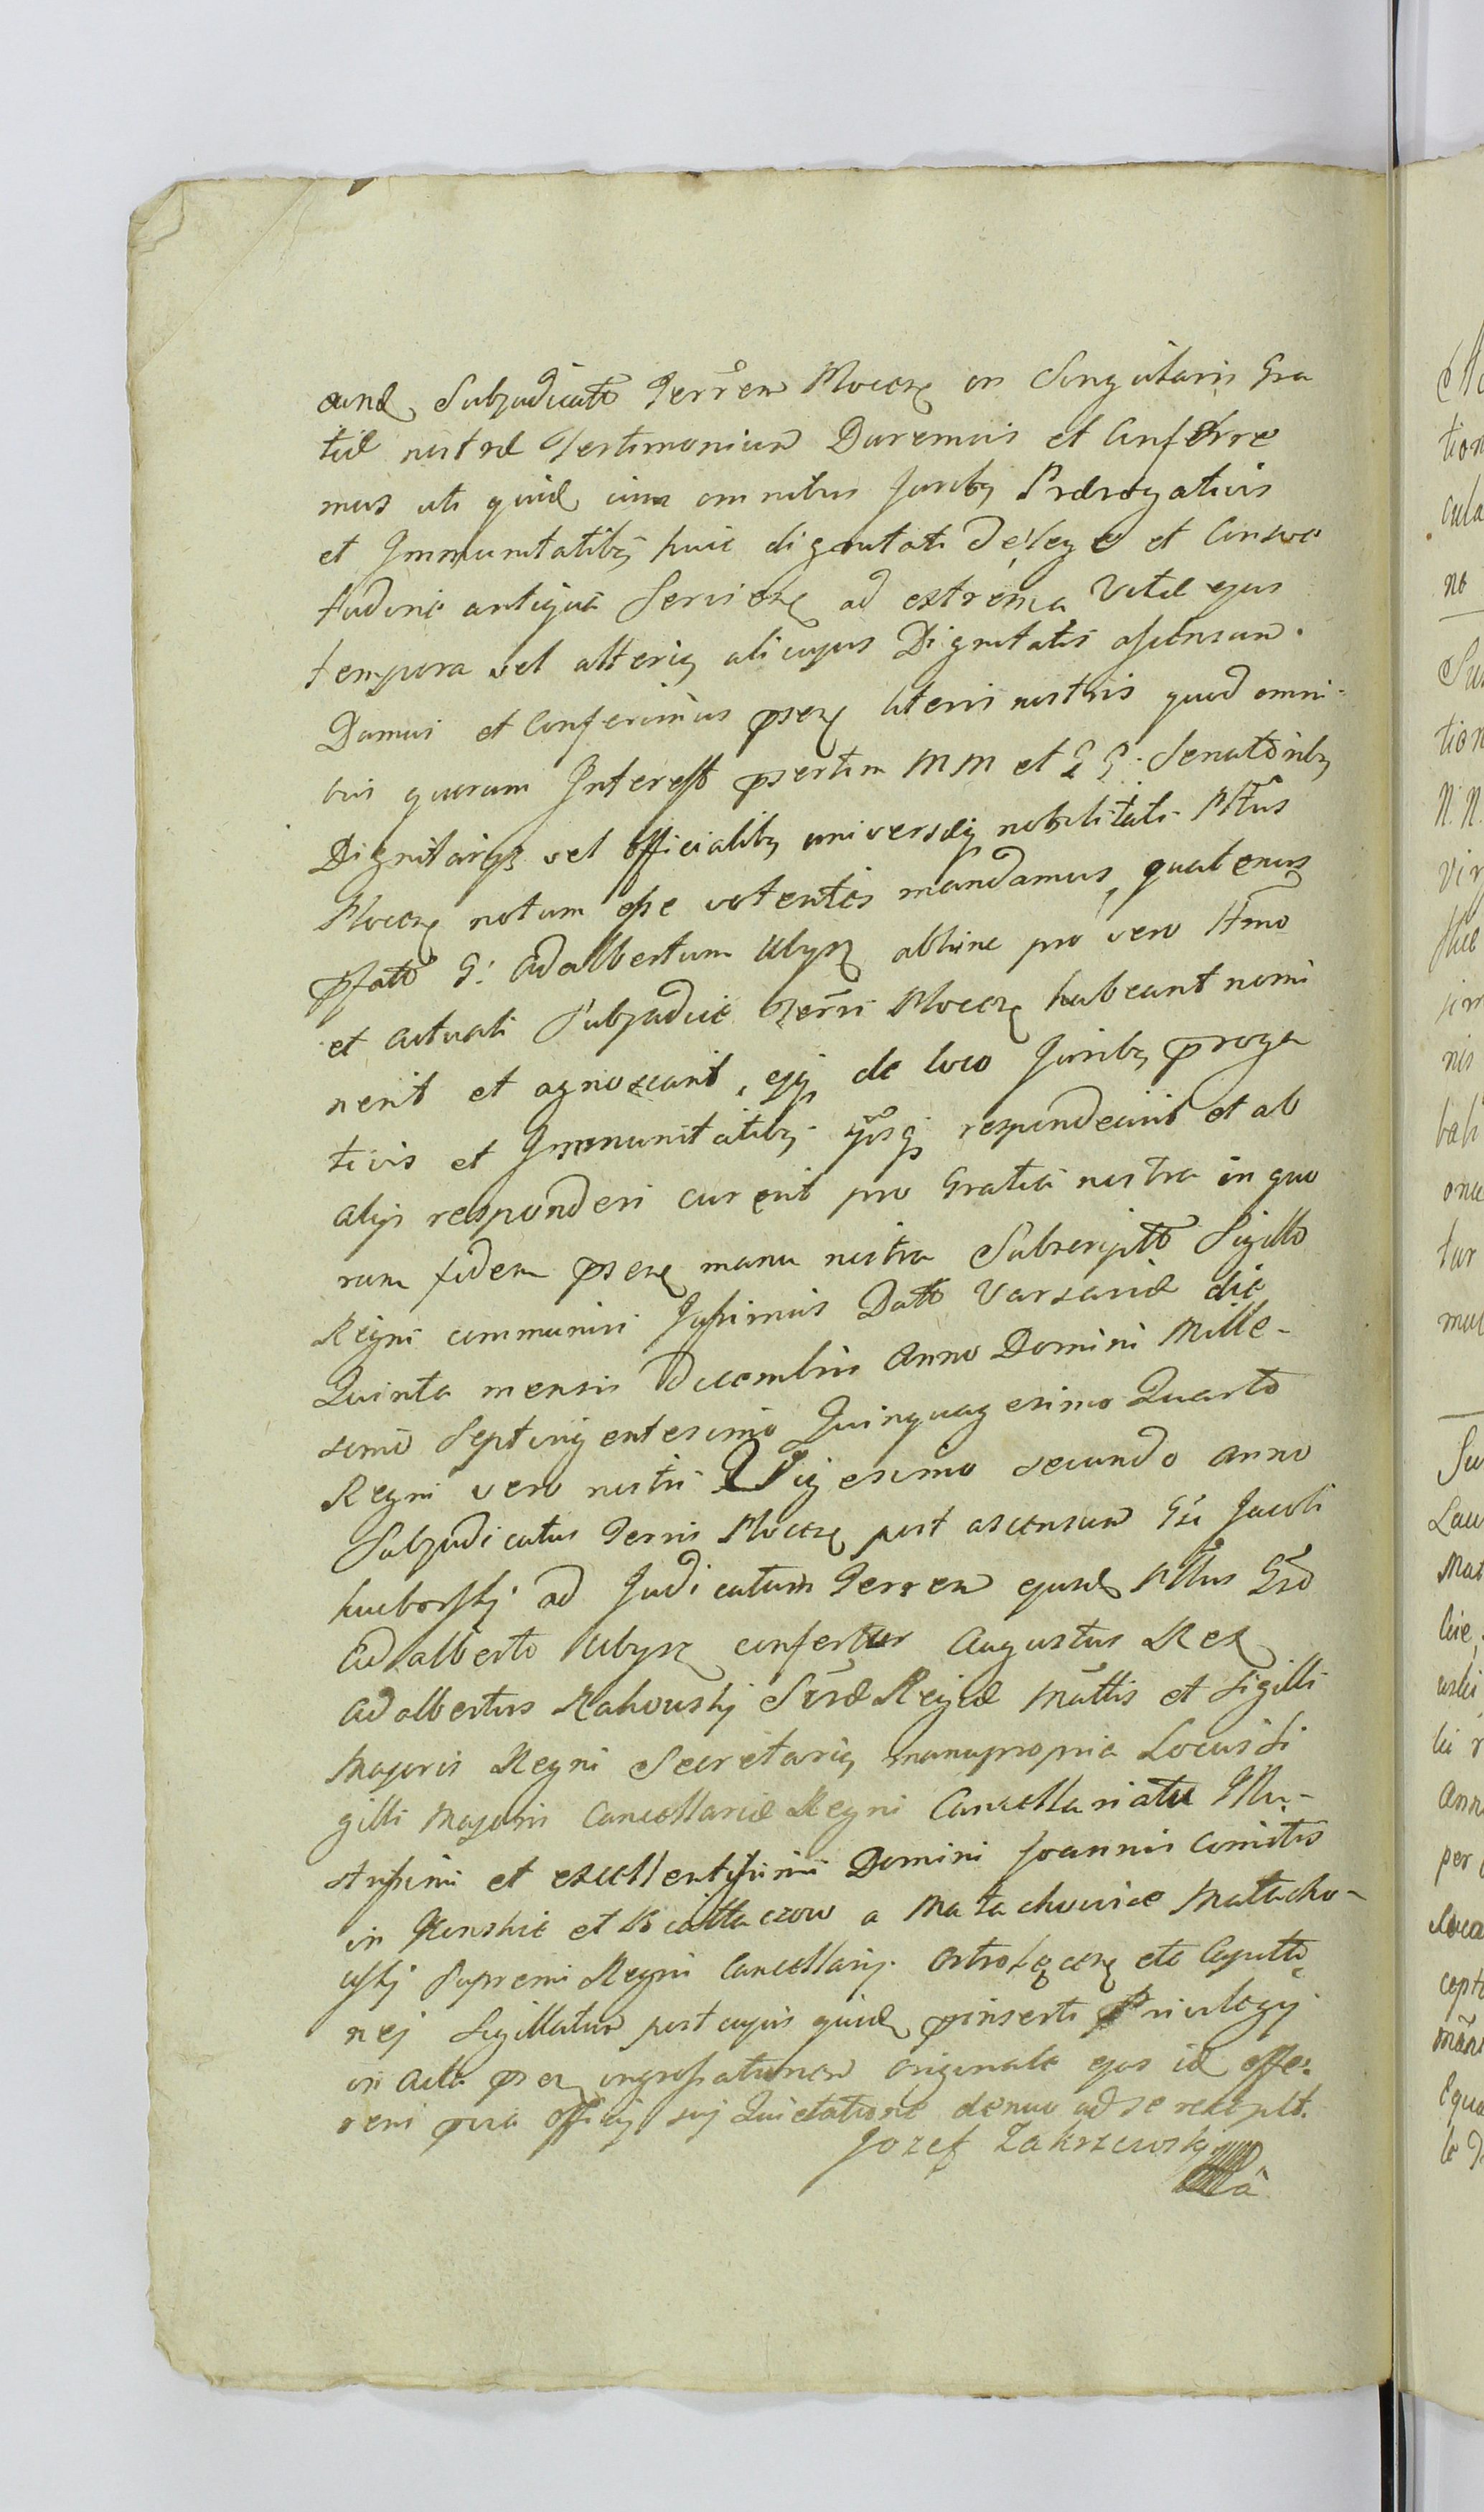 eund Subjudicatū Terren Plocen in Singularis Gra
tiæ nostræ Testimonium Daremus et Conferre
mus uti quid cum omnibus Juribq Prærogativis
et Immunitatibq huic dignitati de lege et Consve
tudine antiqua Servien ad extrema Vitæ ejus
tempora vel alteriq alicujus Dignitatis ascensum.
Damus et Conferimus psen literis nostris quod omni-
bus quorum Interest psertim MM et GG. Senatoribq
Dignitarijs vel officialibq universæq nobilitati Plttus
Plocen notum esse volentes mandamus, quatenus
pfatū G: Adalbertum Ubysz abhinc pro vero lttmo
et actuali Subjudice Terris Plocen habeant nomi
nent et agnoscant, eiq de loco Juribq proga
tivis et Immunitatibq respondeant et ab
alijs responderi curent pro Gratia nostra in quo
rum fidem psen manu nostra Subscriptō Sigillo
Regni communiri Jussimus Dattū Varsaviæ die
Quinta mensis Decembris Anno Domini Mille-
simo Septingentesimo Quinquagesimo Quarto
Regni vero nostri Vigesimo secundo anno
Subjudicatus Terris Plocen post ascensum Gsi Jacobi
ad Judicatum Terren ejusd Plttus Gso
Adalberto Ubysz confertur Augustus Rex
Adalbertus Rakowskj Sræ Regiæ Mattis et Sigilli
Majoris Regni Secretariq manupropria Locus Si
gilli Majoris Cancellariæ Regni Cancellariatu Illu-
strissimi et excellentissimi Domini Joannis Comitis
in Konskie et Białłaczow a Małachowice Małłacho-
wskj Supremi Regni Cancellarij Ostrołęcen etc Capitta
nej Sigillatum post cujus quid pinserti Privilegij
in Acta psen ingrossationem originale ejus id offe-
rens officij sui Quietatione denuo ad se recepit.
Jozef Zakrzewskj